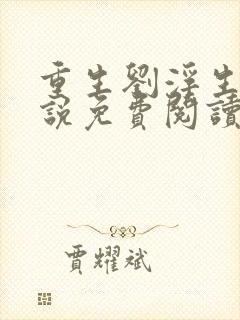 重生劉淫生
說免費閱讀
賈耀斌